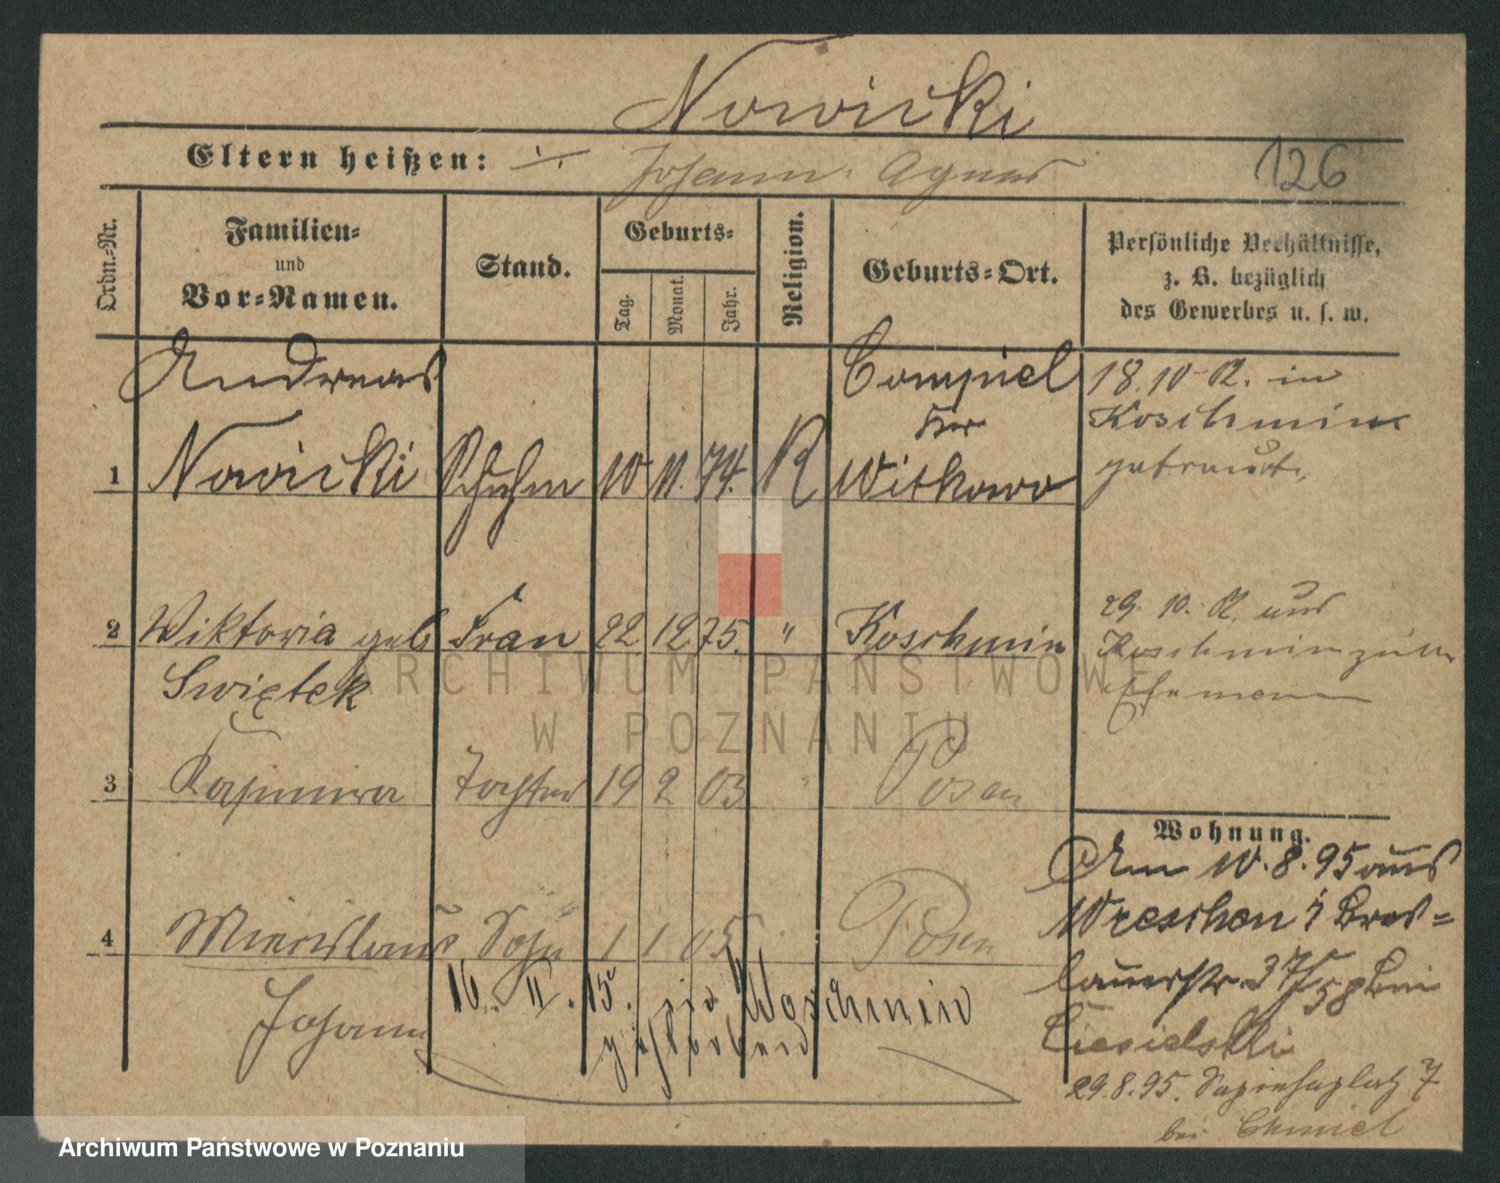 Nowicki
Eltern heißen: Johann. Agnes
126
Ordn.-Nr.
Familien-
und
Vor-Namen.
Stand.
Geburts-
Tag.
Monat.
Jahr.
Religion.
Geburts-Ort.
Persönliche Verhältnisse,
z. B. bezüglich
des Gewerbes u. s. w.
Andreas
1 Nowicki Schuhm 10 11. 74. R
Witkowo
18.10 R. in
Koschmin
getraut.
2 Wiktoria geb Frau 22 12 75. " Koschmin
Swiętek
29. 10. R. aus
Koschmin zum
Ehemann
3 Kasimira Tochter 19 2 03 " Posen
4 Miecislaus Sohn 1 1 05 Posen
Johann
16. II. 15. in Koschmin
gestorben
Wohnung.
Am 10.8.95 aus
Wreschen i Bres-
lauerstr 37/38 bei
Ciesielski
29.8.95. Sapiehaplatz 7
bei Chmiel
ARCHIWUM PAŃSTWOWE
W POZNANIU
Archiwum Państwowe w Poznaniu